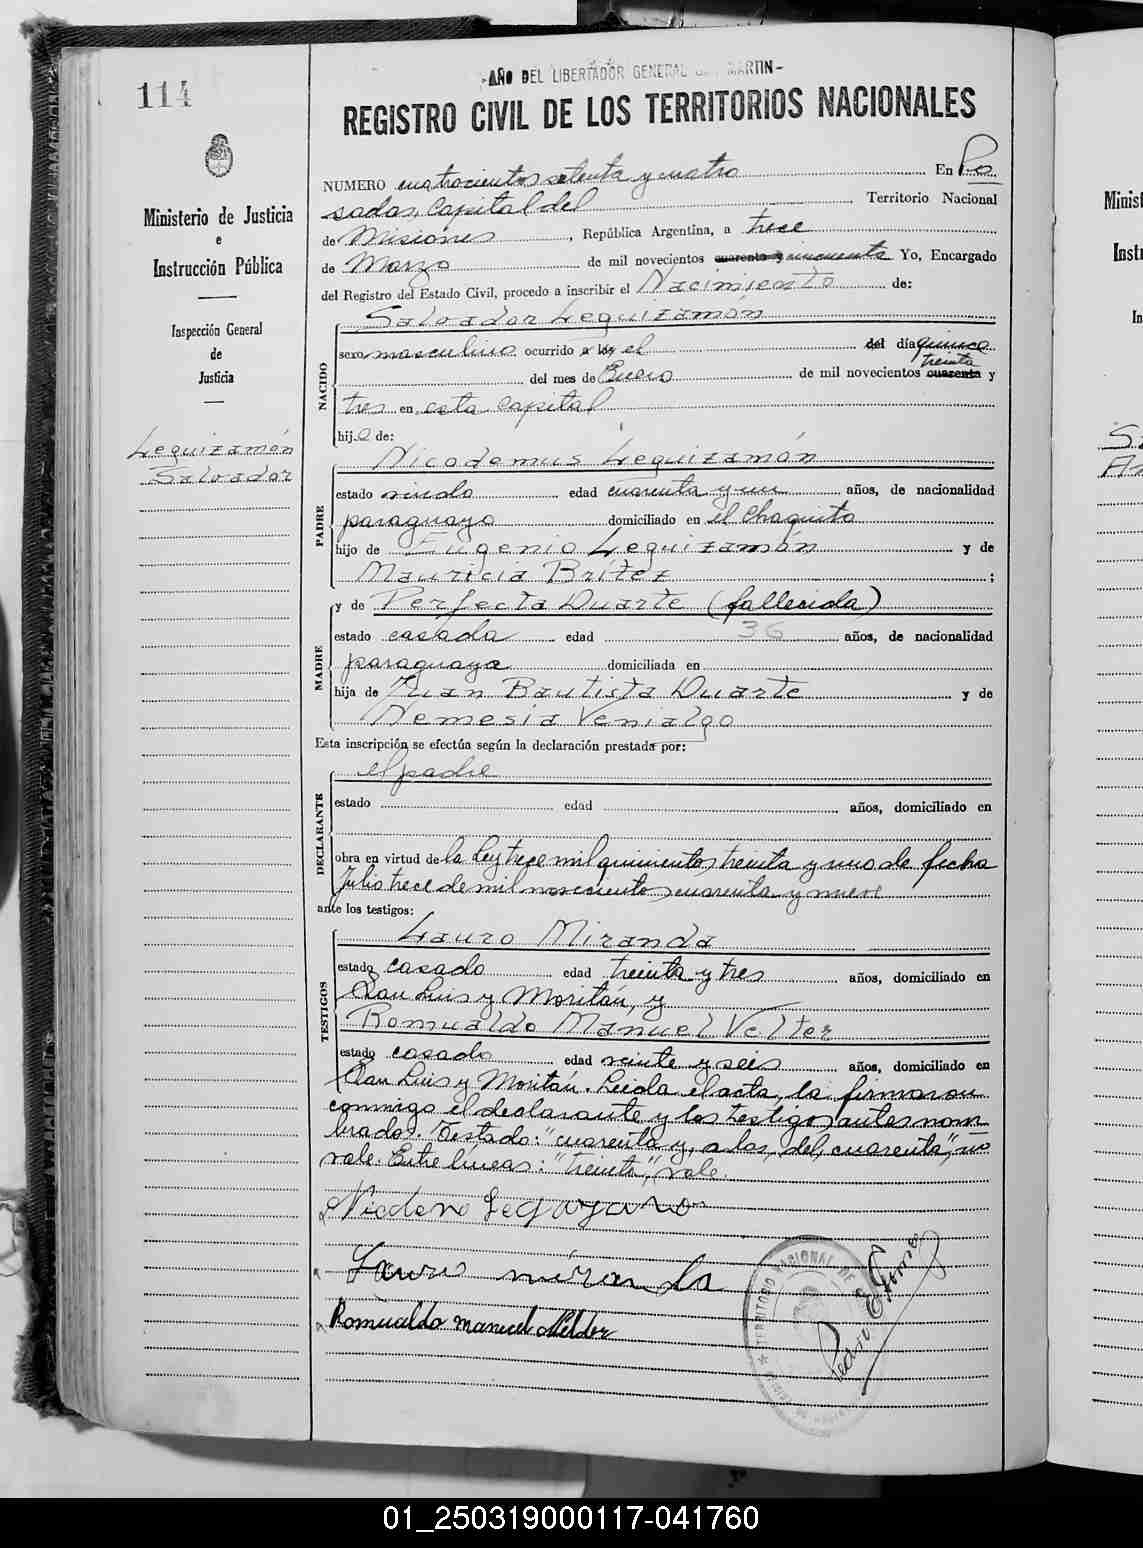 114
-AÑO DEL LIBERTADOR GENERAL SAN MARTIN-
REGISTRO CIVIL DE LOS TERRITORIOS NACIONALES
Ministerio de Justicia
e
Instrucción Pública
Inspección General
de
Justicia
Leguizamón
Salvador
NUMERO cuatrocientos setenta y cuatro En Po
sadas, Capital del Territorio Nacional
de Misiones, República Argentina, a trece
de Marzo de mil novecientos cuarenta y cincuenta Yo, Encargado
del Registro del Estado Civil, procedo a inscribir el Nacimiento de:
NACIDO
Salvador Leguizamón
sexo masculino ocurrido a los el del día quince
treinta
del mes de Enero de mil novecientos cuarenta y
tres en esta Capital
hijo de:
PADRE
Nicodemus Leguizamón
estado viudo edad cuarenta y un años, de nacionalidad
paraguayo domiciliado en el Chaquito
hijo de Eugenio Leguizamón y de
Mauricia Britez ;
MADRE
y de Perfecta Duarte (fallecida)
estado casada edad 36 años, de nacionalidad
paraguaya domiciliada en
hija de Juan Bautista Duarte y de
Nemesia Venialgo
Esta inscripción se efectúa según la declaración prestada por:
DECLARANTE
el padre
estado edad años, domiciliado en
obra en virtud de la Ley trece mil quinientos treinta y uno de fecha
Julio trece de mil novecientos cuarenta y nueve
ante los testigos:
TESTIGOS
Lauro Miranda
estado casado edad treinta y tres años, domiciliado en
San Luis y Moritán, y
Romualdo Manuel Velter
estado casado edad veinte y seis años, domiciliado en
San Luis y Moritán. Leida el acta, la firmaron
conmigo el declarante y los testigos antes nom
brados. Testado: "cuarenta y, a los, del, cuarenta", no
vale. Entre líneas: "treinta", vale.
Lauro miranda
Romualdo manuel
TERRITORIO NACIONAL DE
Pedro
Minist
Inst
In
01_250319000117-041760